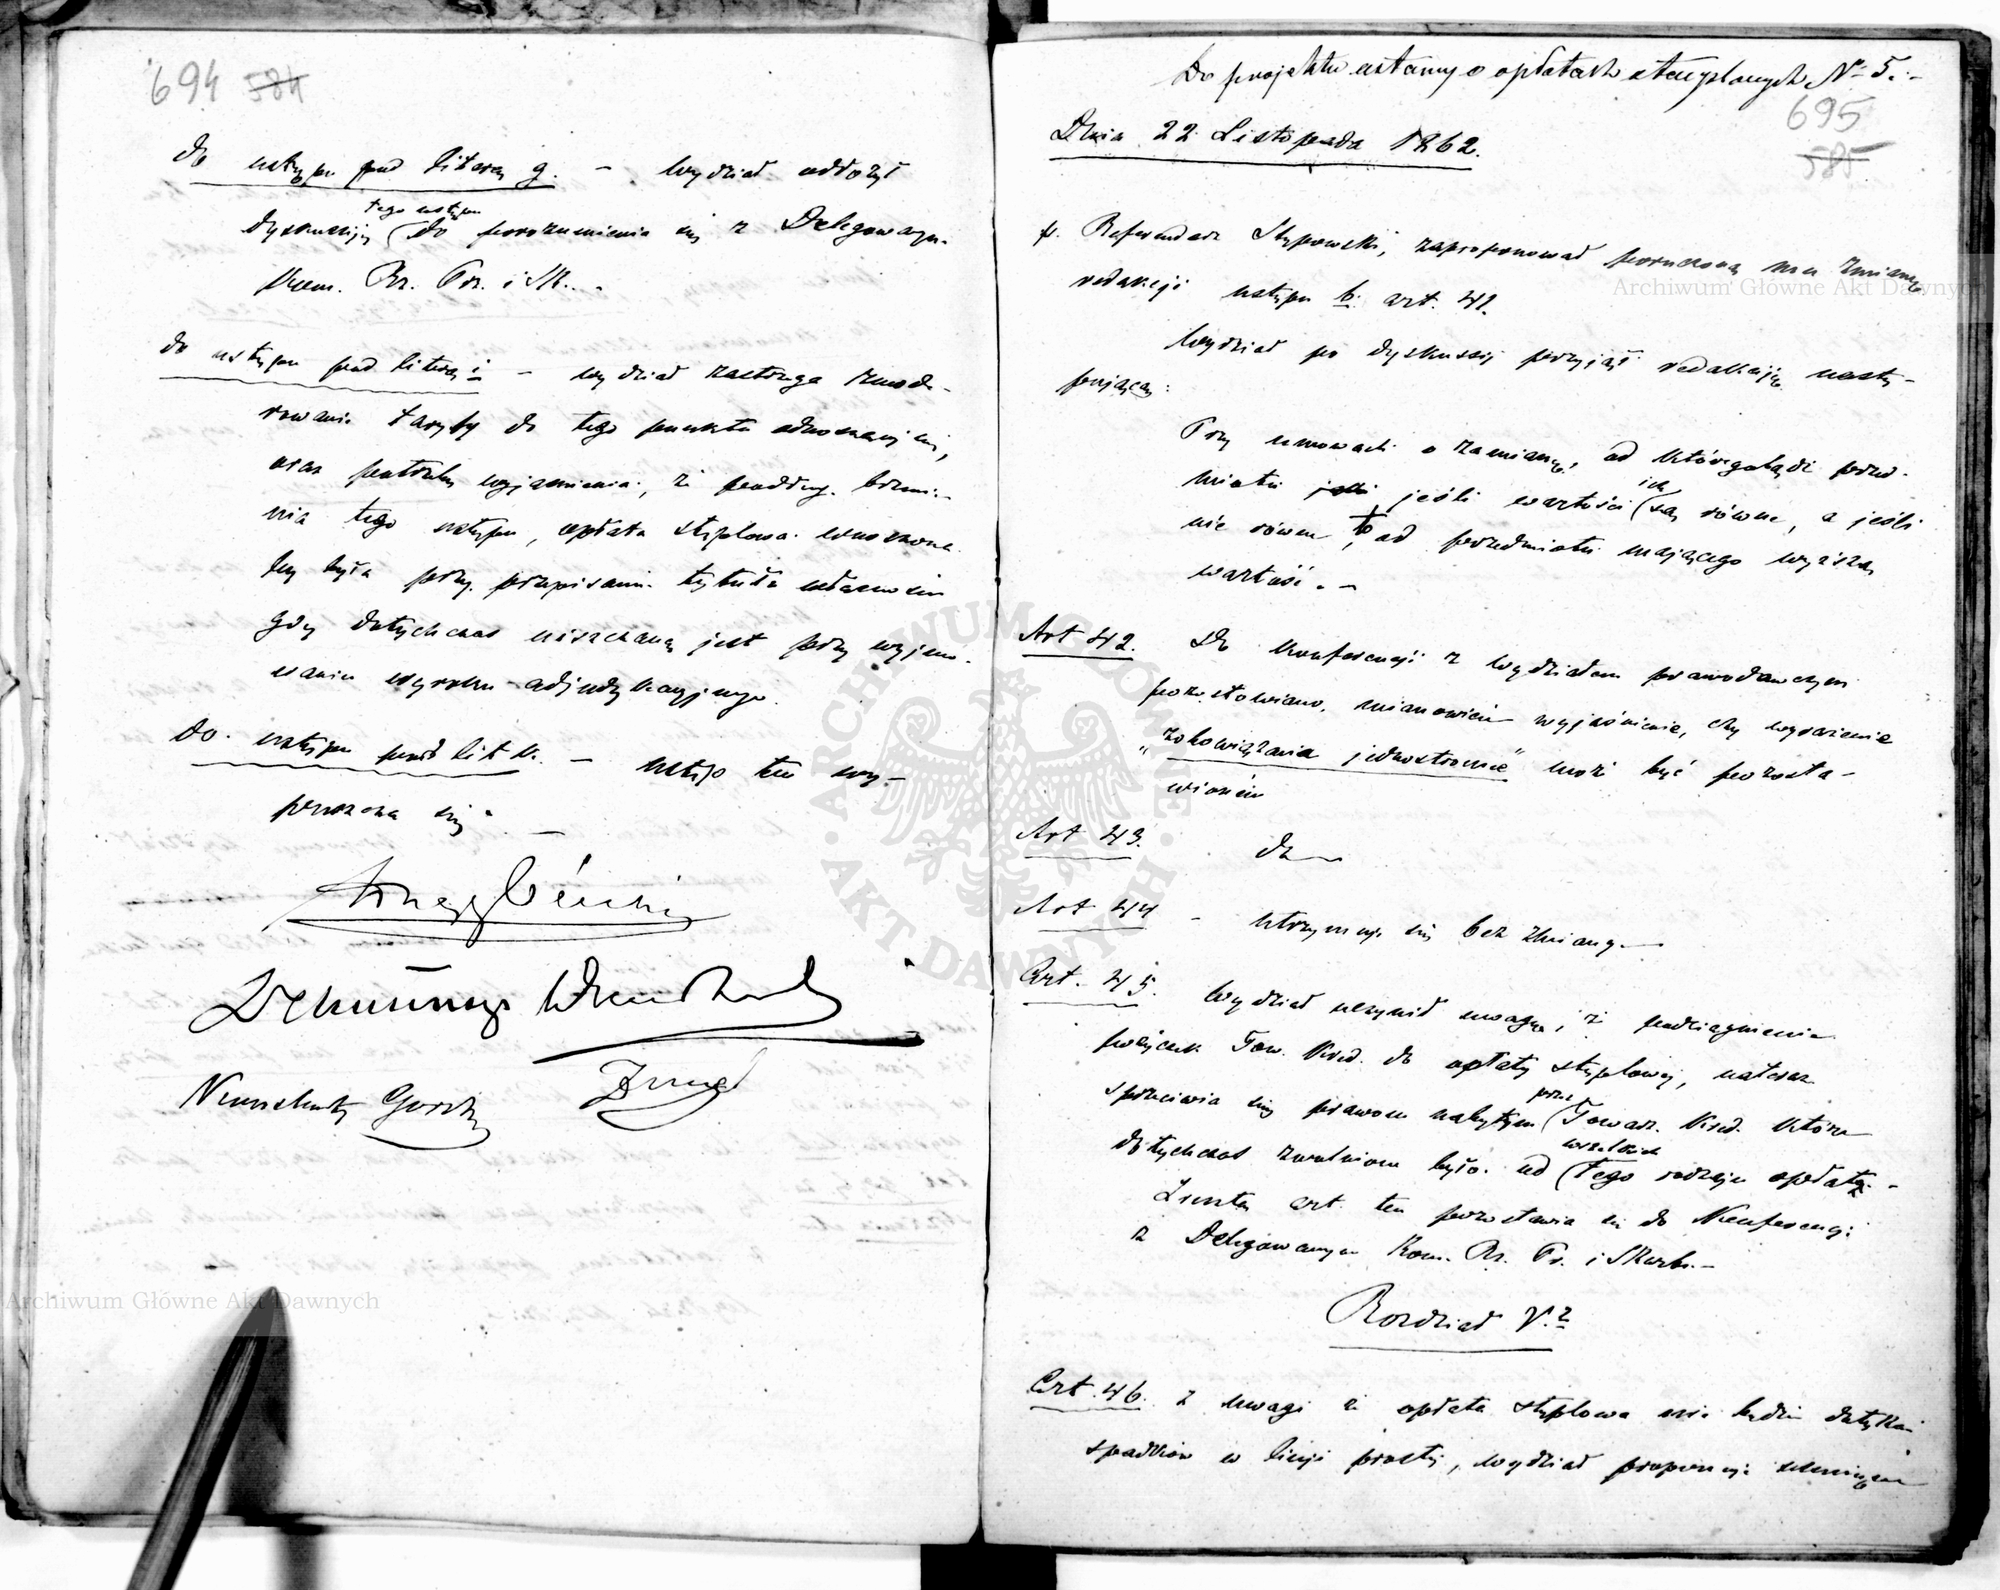 694 584
do ustępu pod literą g. – Wydział odłożył
dyskussiję (tego ustępu do porozumienia się z Delegowanym
Kom. Rz. Prz. i Sk. –
do ustępu pod literą i – wydział zastrzega zmode-
rowanie taryfy do tego punktu odnoszącej się,
oraz potrzebę wyjaśnienia, że podług brzmie-
nia tego ustępu, opłata stęplowa wnoszona
by była przy przepisaniu tytułu własności
gdy dotychczas uiszczaną jest przy wyjmo-
waniu wyroku adjudykacyjnego.
do ustępu pod lit k. – ustęp ten wy-
puszcza się. –
Do projektu ustawy o opłatach stęplowych Nr 5. –
695
585
Dnia 22 Listopada 1862.
p. Referendarz Stypowski, zaproponował poruczoną mu zmianę
redakcji ustępu b. art. 41.
Wydział po dyskussij przyjął redakciję nastę-
pującą:
Przy umowach o zamianę, od któregobądź przed-
miotu jeśli wartości (ich są równe, a jeśli
nie równe, to od przedmiotu mającego wyższą
wartość. –
Art 42. Do konferencji z Wydziałem prawodawczym
pozostawiono, mianowicie wyjaśnienie, czy wyrażenie
„zobowiązania jednostronne" może być pozosta-
wionem
Art 43. do
Art 44 – utrzymuje się bez zmiany. –
Art. 45. Wydział uczynił uwagę, iż podciągnienie
pożyczek Tow. Kred. do opłaty stęplowej,
sprzeciwia się prawom nabytym (przez Towarz. Kred. które
dotychczas zwolnione było od (wszelkich tego rodzaju opłat. –
Zresztą art. ten pozostawia się do Konferencyi
z Delegowanym Kom. Rz. Pr. i Skarb. –
Rozdział V.
Art. 46. z uwagi że opłata stęplowa nie będzie dotykać
spadków w linji prostej, wydział proponuje
Archiwum Główne Akt Dawnych
Archiwum Główne Akt Dawnych
ARCHIWUM GŁÓWNE
AKT DAWNYCH